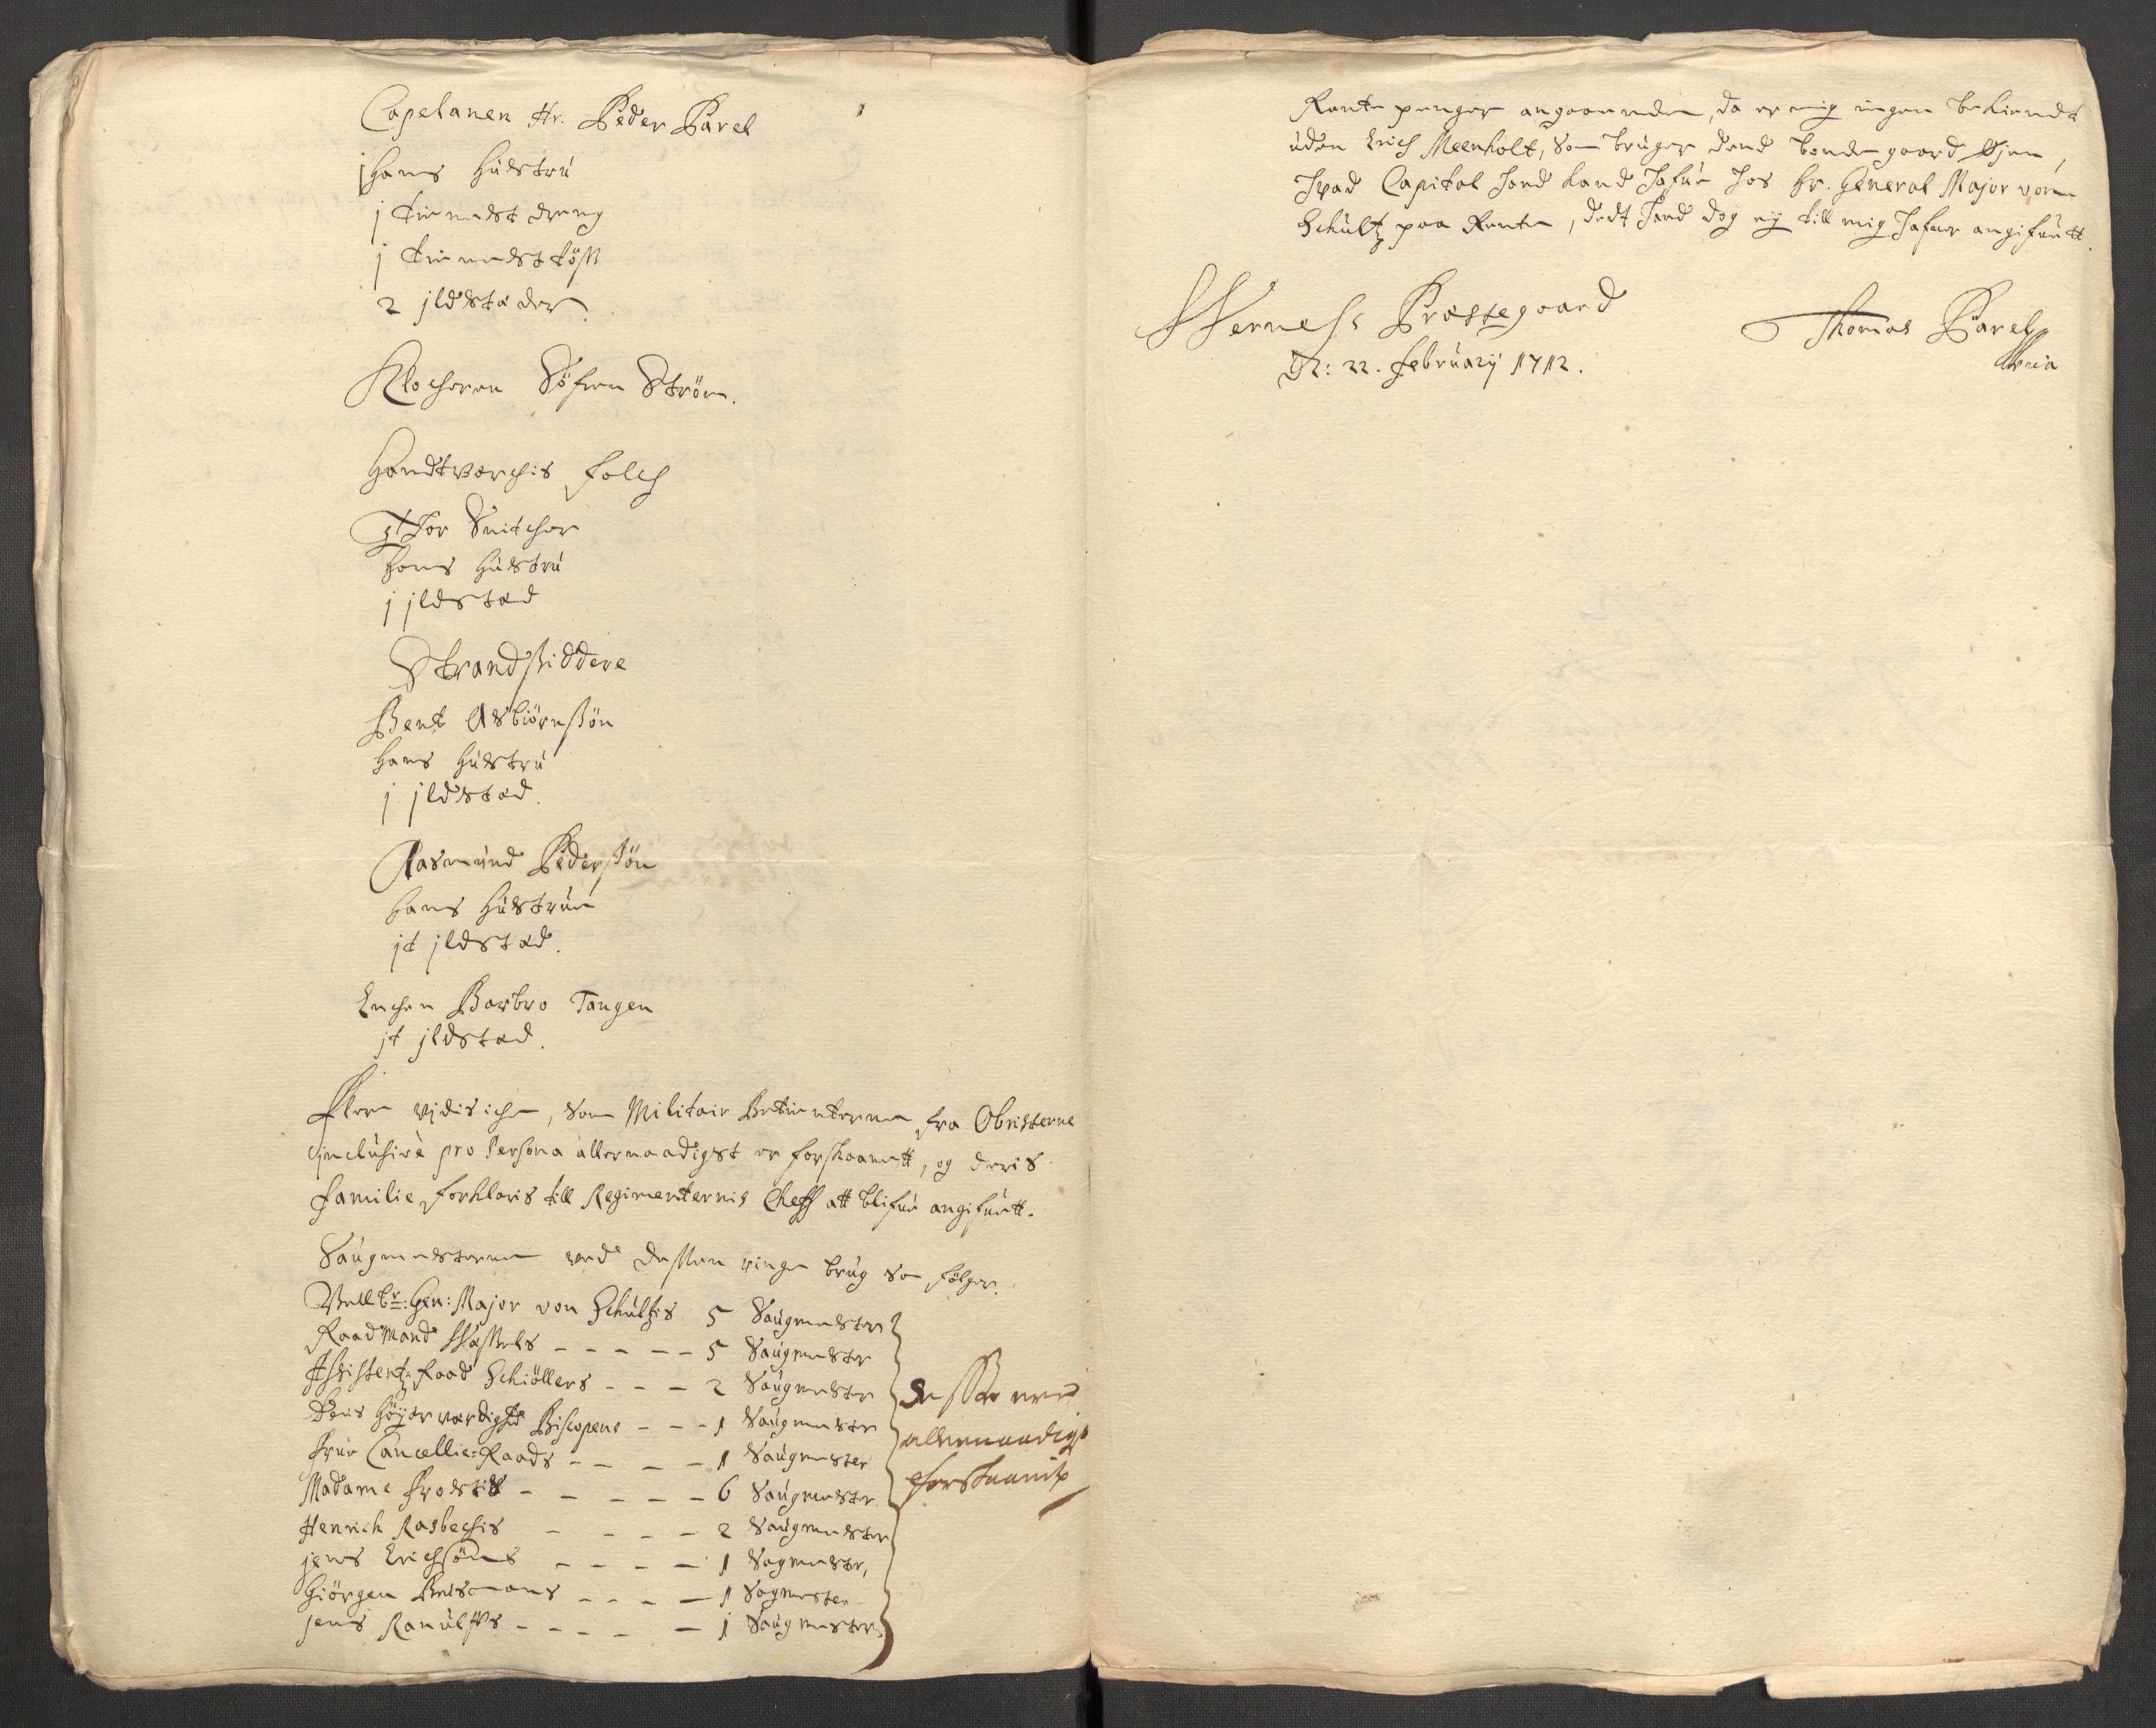 Capelanen Hr. Peder Parel
j hans hüstrü
j tienist dreng
j tieniste töß
2 jldstæder.
Klocheren Söfren Ström.
Handtverchis folch
Thor Snitcher
hans hüstrü
j jldstæd
Strandsiddere
Bent Asbiörnßön
hans hüstrü
j jldstæd.
Rasmünd Pederßön
hans hüstrüe
jt jldstæd.
Enchen Barbro Tangen
jt jldstæd.
Flere vidis iche, som Militair Betienterne fra Obristerne
inclüsivè pro Persona allernaadigst er forskaanett, og deris
familie forklaris till Regimenternis Cheff att blifüe angifüett.
Saugmesterne ved dessen ringe brüg som fölger.
Velbr: Gen: Major von Schültzis 5 Saugmestere
Raadmand Wessels - - - - - 5 Saugmester
Assistentz-Raad Schiöllers - - - 2 Saugmester
Deris Höyærværdighed Biscopens - - - 1 Saugmester
Frue Cancellie-Raads - - - - 1 Saugmester
Madame Frostis - - - - - 6 Saugmester
Henrich Rasbechis - - - - 2 Saugmester
jens Erichsöns - - - - 1 Sagmester,
Giörgen - - - - 1 Sagmester
jens Ranülfs - - - - - j Saugmester
Disse ere
allernaadigst
forskaanit
Rente penger angaaende, da er mig ingen bekiendt
uden Erich Meenholt, som brüger dend bonde gaard Øien,
hvad Capital hand kand hafüe hos Hr. General Major von
Schültz paa Rente, dedt hand dog ej till mig hafuer angifüett.
Werness Præstegaard
D: 22. februarij 1712.
Thomas Parelj
Mpria